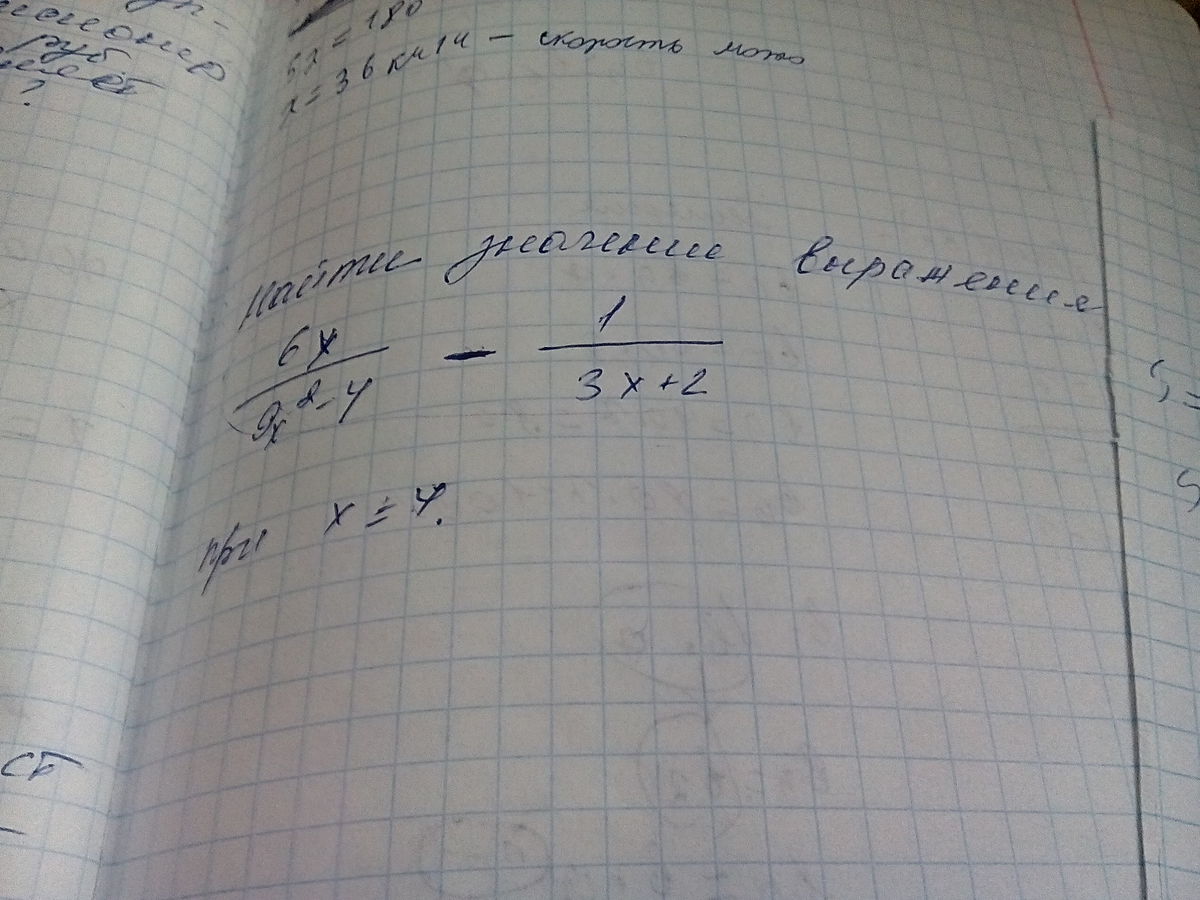 руб
?
5x = 180
x = 36 км/ч - скорость мото
Найти значение выражения
6x/(9x² - 4) - 1/(3x + 2)
при x = 4.
S =
S
ст